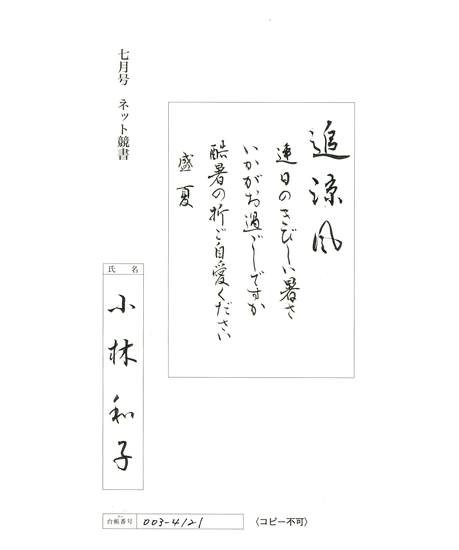 七月号 ネット競書
追涼風
連日のきびしい暑さ
いかがお過ごしですか
酷暑の折ご自愛ください
盛夏
氏名
小林和子
台帳番号 003-4121
〈コピー不可〉